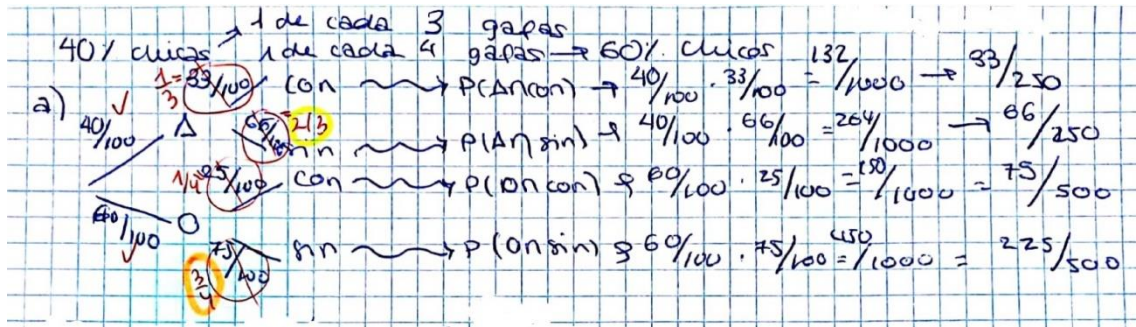 1 de cada 3 gafas
40% chicas 1 de cada 4 gafas → 60% chicos
a) 40/100 Δ 1/3 = 33/100 con → P(Δ∩con) → 40/100 · 33/100 = 132/1000 → 33/250
66/100 = 2/3 sin → P(Δ∩sin) → 40/100 · 66/100 = 264/1000 → 66/250
1/4 = 25/100 con → P(O∩con) → 60/100 · 25/100 = 150/1000 = 75/500
60/100 O
3/4 75/100 sin → P(O∩sin) → 60/100 · 75/100 = 450/1000 = 225/500